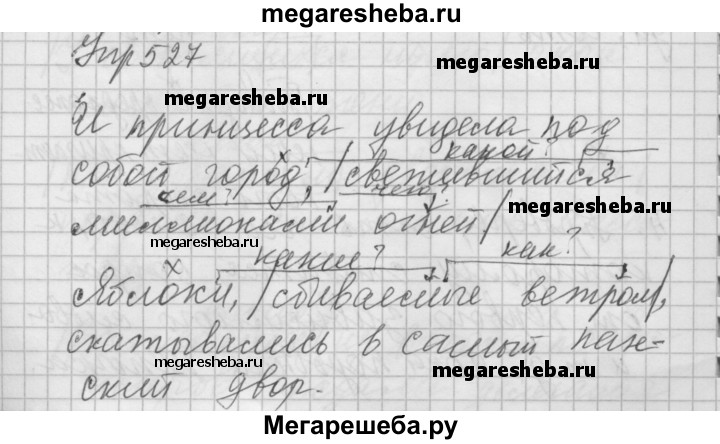 megaresheba.ru
Упр 527
megaresheba.ru
И принцесса увидела под
какой?
собой город, /светившийся
чем? чего?
миллионами огней/.
megaresheba.ru
megaresheba.ru
какие? как?
Яблоки, /сбиваемые ветром/,
скатывались в самый пан-
megaresheba.ru
megaresheba.ru
ский двор.
Мегарешеба.ру